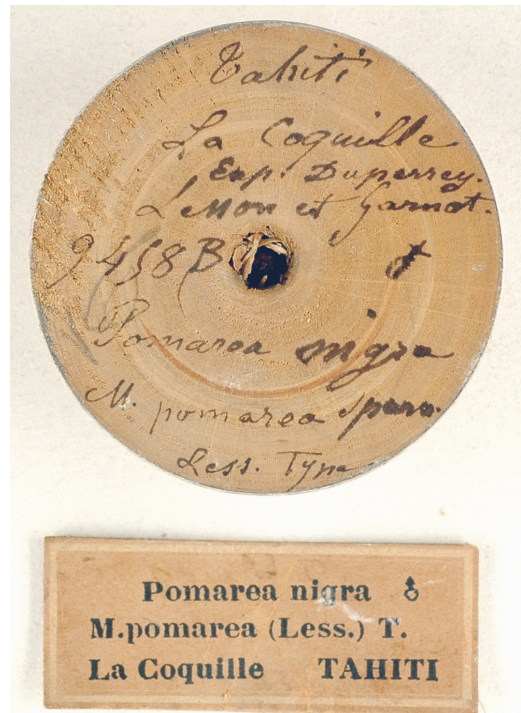 Tahiti
La Coquille
Exp. Duperrey.
Lesson et Garnot.
9458 B ♂
Pomarea nigra
M. pomarea Sparm.
Less. Type
Pomarea nigra ♂
M.pomarea (Less.) T.
La Coquille TAHITI